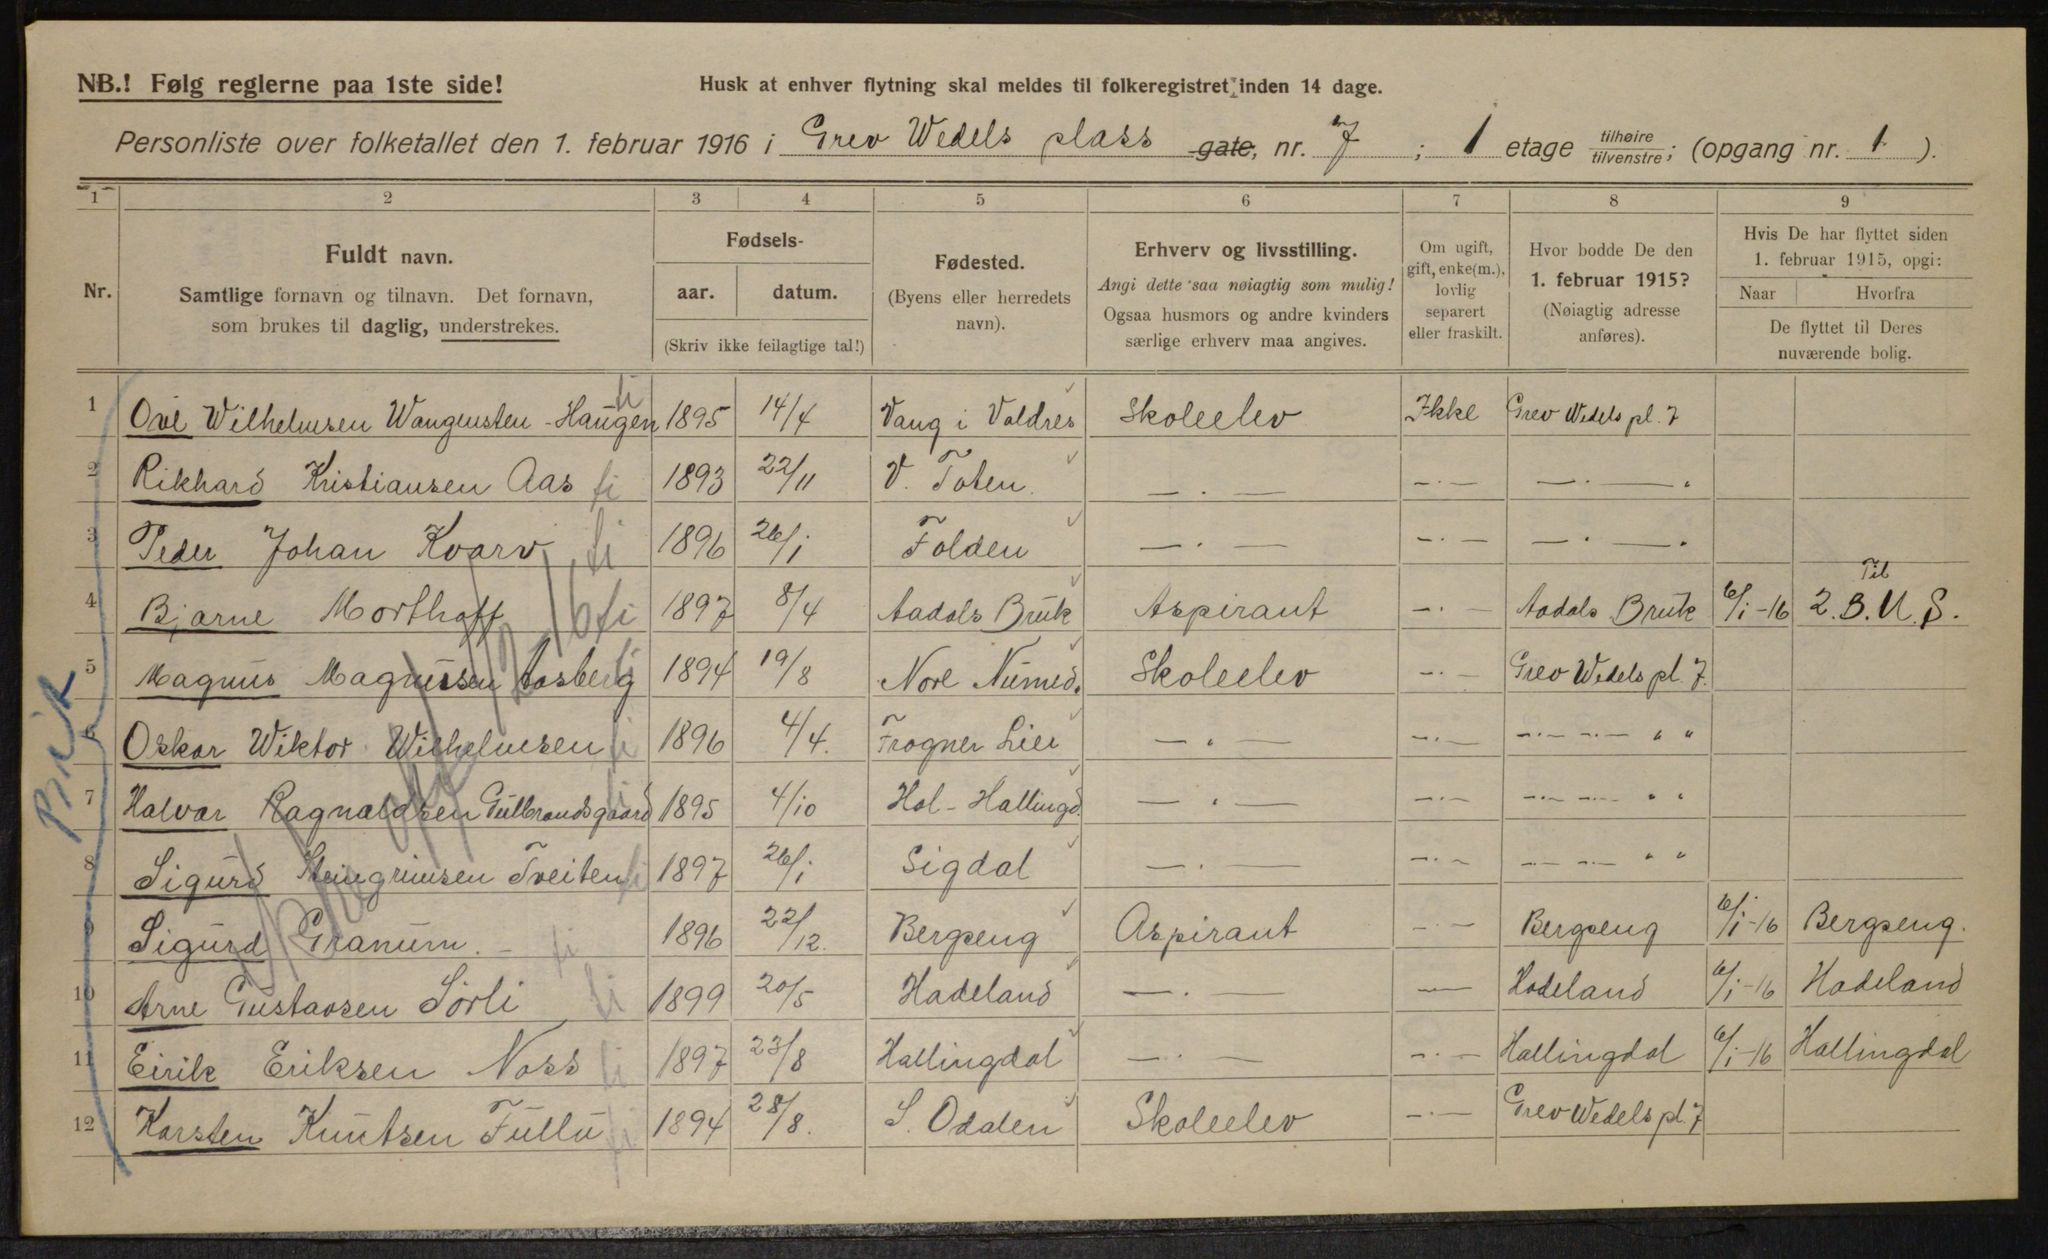 NB.! Følg reglerne paa 1ste side!
Husk at enhver flytning skal meldes til folkeregistret inden 14 dage.
Personliste over folketallet den 1. februar 1916 i Grev Wedels plass gate, nr. 7 ; 1 etage tilhøire tilvenstre; (opgang nr. 1 ).
1 2 3 4 5 6 7 8 9
Nr.
Fuldt navn.
Samtlige fornavn og tilnavn. Det fornavn,
som brukes til daglig, understrekes.
Fødsels-
aar. datum.
(Skriv ikke feilagtige tal!)
Fødested.
(Byens eller herredets
navn).
Erhverv og livsstilling.
Angi dette saa nøiagtig som mulig!
Ogsaa husmors og andre kvinders
særlige erhverv maa angives.
Om ugift,
gift, enke(m.),
lovlig
separert
eller fraskilt.
Hvor bodde De den
1. februar 1915?
(Nøiagtig adresse
anføres).
Hvis De har flyttet siden
1. februar 1915, opgi:
Naar Hvorfra
De flyttet til Deres
nuværende bolig.
1 Ove Wilhelmsen Wangensten - Haugen 1895 14/4 Vang i Valdres Skoleelev Ikke Grev Wedels pl. 7
2 Rikhard Kristiansen Aas 1893 22/11 V. Toten. — . — — . — — . — "
3 Peder Johan Kvarv 1896 26/1 Folden — . — — . — — . — "
4 Bjarne Morthoff 1897 8/4 Aadals Bruk Aspirant — . — Aadals Bruk 6/1-16 Til 2. B. U. S.
5 Magnus Magnussen Aasberg 1894 19/8 Nore Numed. Skoleelev — . — Grev Wedels pl. 7.
6 Oskar Wiktor Wilhelmsen 1896 4/4. Frogner Lier — " — — . — — . — — . — " "
7 Halvar Ragnaldsen Gulbrandsgaard 1895 4/10 Hol - Hallingd. — " — — . — — . — — . — " "
8 Sigurd Steingrimsen Tveiten 1897 26/1 Sigdal — . — — . — — . — — . — " "
9 Sigurd Granum. 1896 22/12. Bergseng Aspirant — . — Bergseng 6/1-16 Bergseng.
10 Arne Gustavsen Sörli 1899 20/5 Hadeland — . — — Hadeland 6/1-16 Hadeland
11 Eirik Eriksen Noss 1897 23/8 Hallingdal — . — — . — Hallingdal 6/1-16 Hallingdal
12 Karsten Knutsen Fullu 1894 28/8. S. Odalen Skoleelev — . — Grev Wedels pl. 7